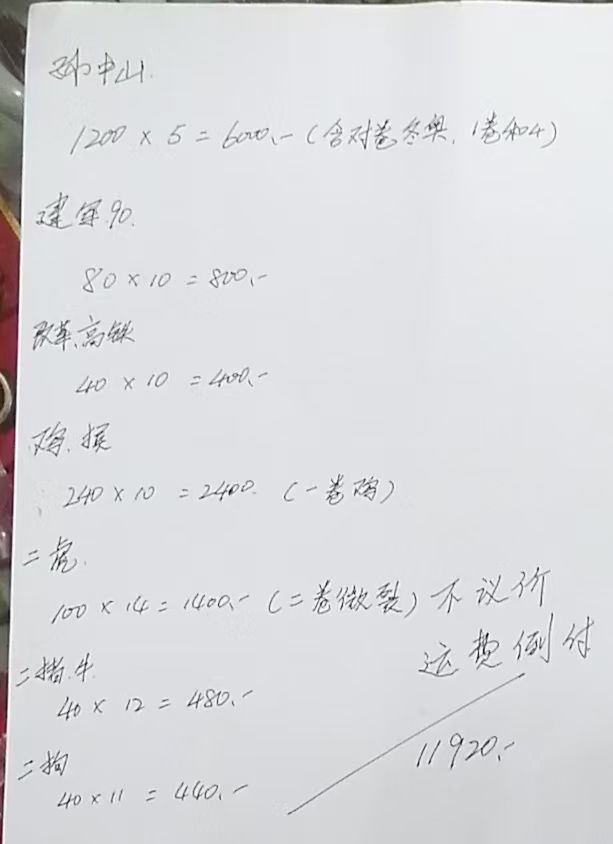 孙中山.
1200 × 5 = 6000.-(含对卷冬奥, 1卷和4)
建军90.
80 × 10 = 800.-
改革、高铁
40 × 10 = 400.-
240 × 10 = 2400. (一卷鸡)
二虎.
100 × 14 = 1400.- (二卷微裂) 不议价
运费倒付
二猪.牛
40 × 12 = 480.-
二狗
40 × 11 = 440.-
11920.-